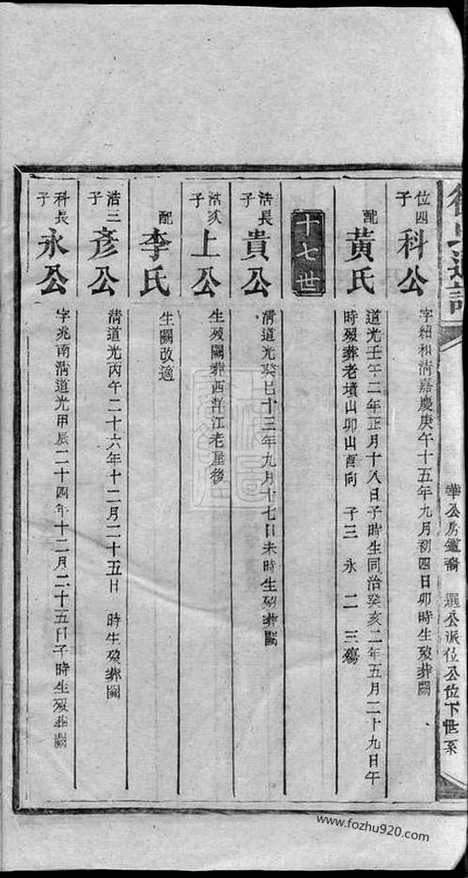 華公房遠裔 選公派位公位下世系
位四子 科公 字紹和淸嘉慶庚午十五年九月初四日卯時生歿葬闕
配 黃氏 道光壬午二年正月十八日子時生同治癸亥二年五月二十九日午
時歿葬老墳山卯山酉向 子三 永 二 三殤
十七世
浩長子 貴公 淸道光癸巳十三年九月十七日未時生歿葬闕
浩次子 上公 生歿闕葬西洋江老屋後
配 李氏 生闕改適
浩三子 彥公 淸道光丙午二十六年十二月二十五日 時生歿葬闕
科長子 永公 字兆南淸道光甲辰二十四年十二月二十五日子時生歿葬闕
www.fozhu920.com